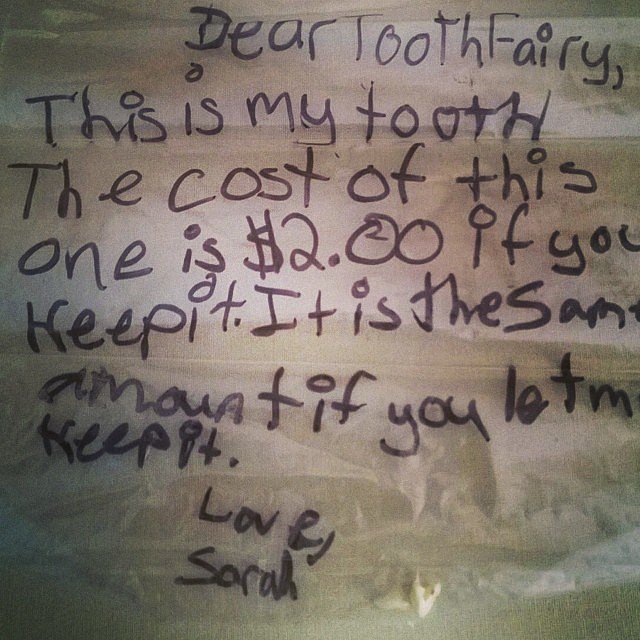 Dear ToothFairy,
This is my tooth
The cost of this
one is $2.00 if you
Keep it. It is the same
amount if you let me
Keep it.
Love,
Sarah